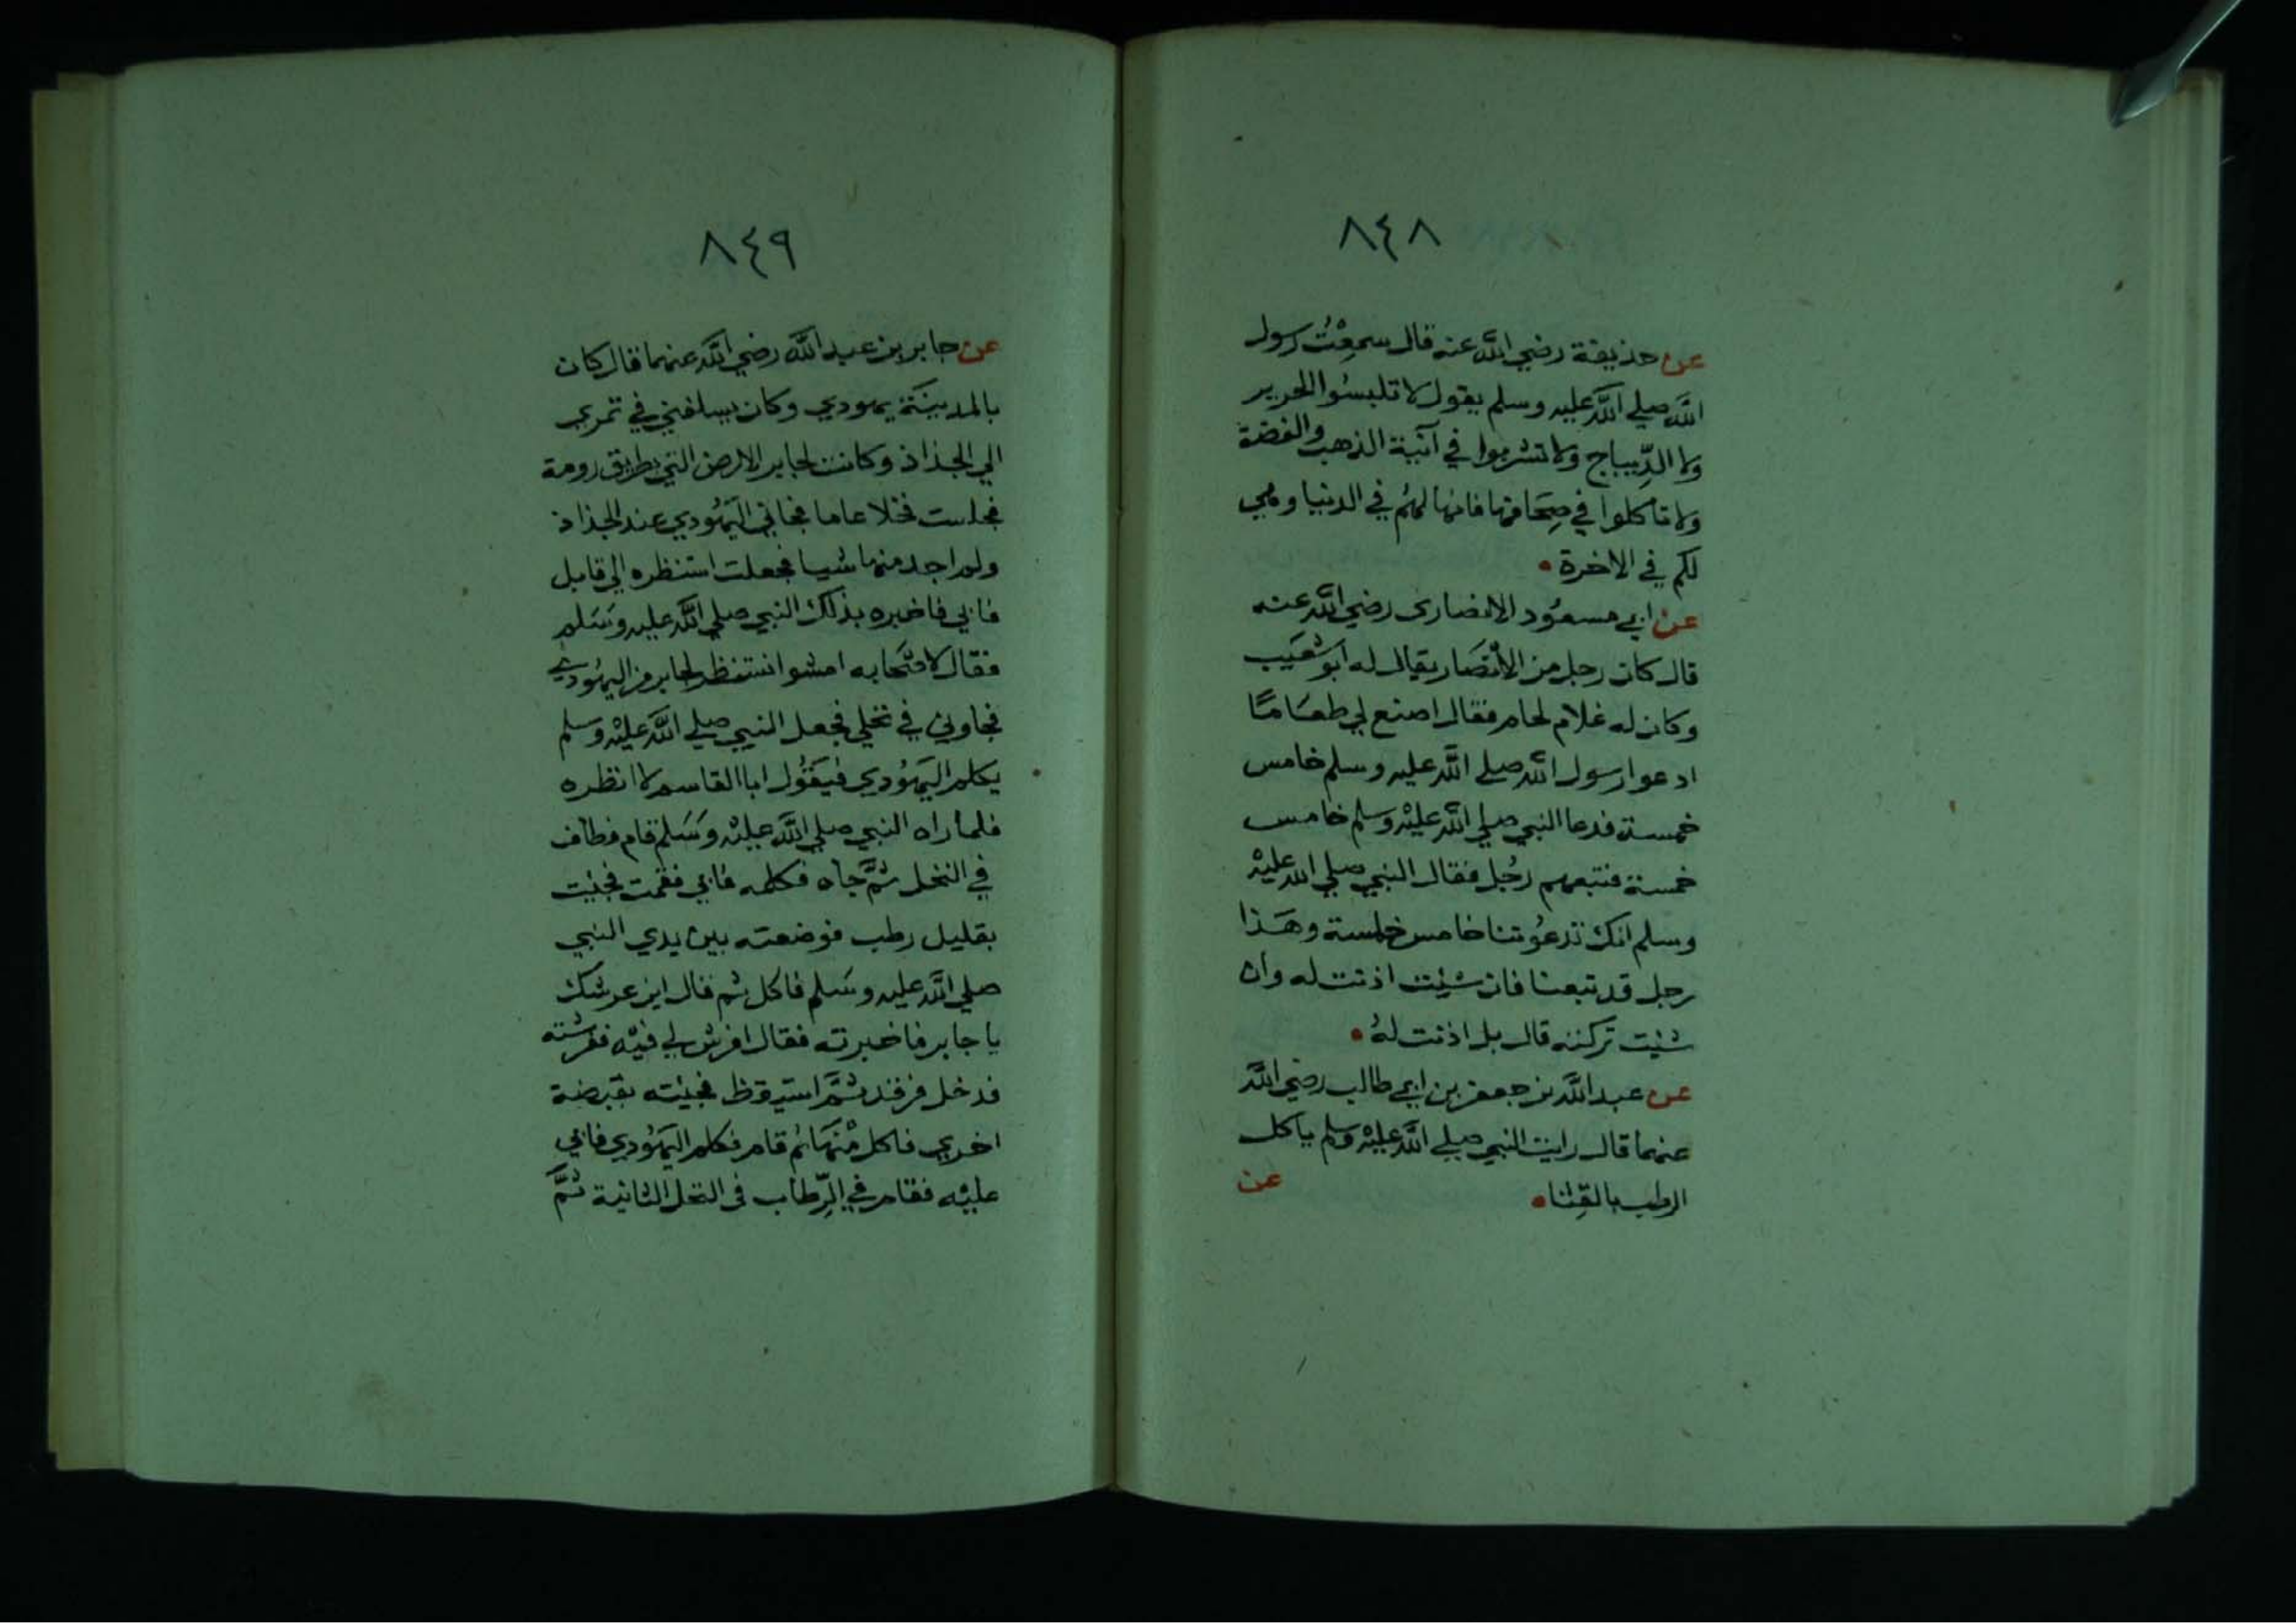 ٨٤٨
عن حذيفة رضي الله عنه قال سمعْتُ رسول
الله صلي الله عليه وسلم يقول لا تلبسُوا الحرير
ولا الدِّيباج ولا تشربوا في آنية الذهب والفضة
ولا تاكلوا في صِحَافها فانها لهُم في الدنيا وهي
لكم في الاخرة
عن ابي مسعُود الانصارى رضي الله عنه
قال كان رجل من الأنصَار يقال له ابو شعَيب
وكان له غلام لحام فقال اصنع لي طعَامًا
ادعوا رسول الله صلي الله عليه وسلم خامس
خمسة فدعا النبي صلي الله عليْه وسلم خامس
خمسة فتبعهم رجُل فقال النبي صلي الله عليْه
وسلم انك تدعُوتنا خامس خمسة وهَذا
رجل قد تبعنا فان شيت اذنت له وان
شيت تركته قال بل اذنت لهُ
عن عبد الله بن جعفر بن ابي طالب رضي الله
عنهما قال رايت النبي صلي الله عليْه وسلم ياكل
الرطب بالقِثا
عن
٨٤٩
عن جابر بن عبد الله رضي الله عنهما قال كان
بالمدينَة يهودي وكان يسلفني في تمري
الي الجذاذ وكانت لجابر الارض التي بطريق رومة
فجلست فخلا عاما فجاني اليَهُودي عند الجذاذ
ولم اجد منها شيا فجعلت استنظره الي قابل
فابي فاخبره بذلك النبي صلي الله عليه وسَلم
فقال لاصْحابه امشوا نستنظر لجابر من اليهُودي
فجاوني في نخلي فجعل النبي صلي الله عليْه وسلم
يكلم اليَهُودي فيَقُول ابا القاسم لا انظره
فلما راه النبي صلي الله عليْه وسَلم قام فطاف
في النخل ثمَّ جاه فكلمه فابي فقمت فجيت
بقليل رطب فوضعته بين يدي النبي
صلي الله عليه وسَلم فاكل ثم قال اين عرشك
يا جابر فاخبرته فقال افرش لي فيْه ففرشته
فدخل فرقد ثمَّ استيقظ فجيته بقبضة
اخري فاكل مْنهَا ثم قام فكلم اليَهُودي فابي
عليْه فقام في الرِّطاب في النخل الثانية ثمَّ